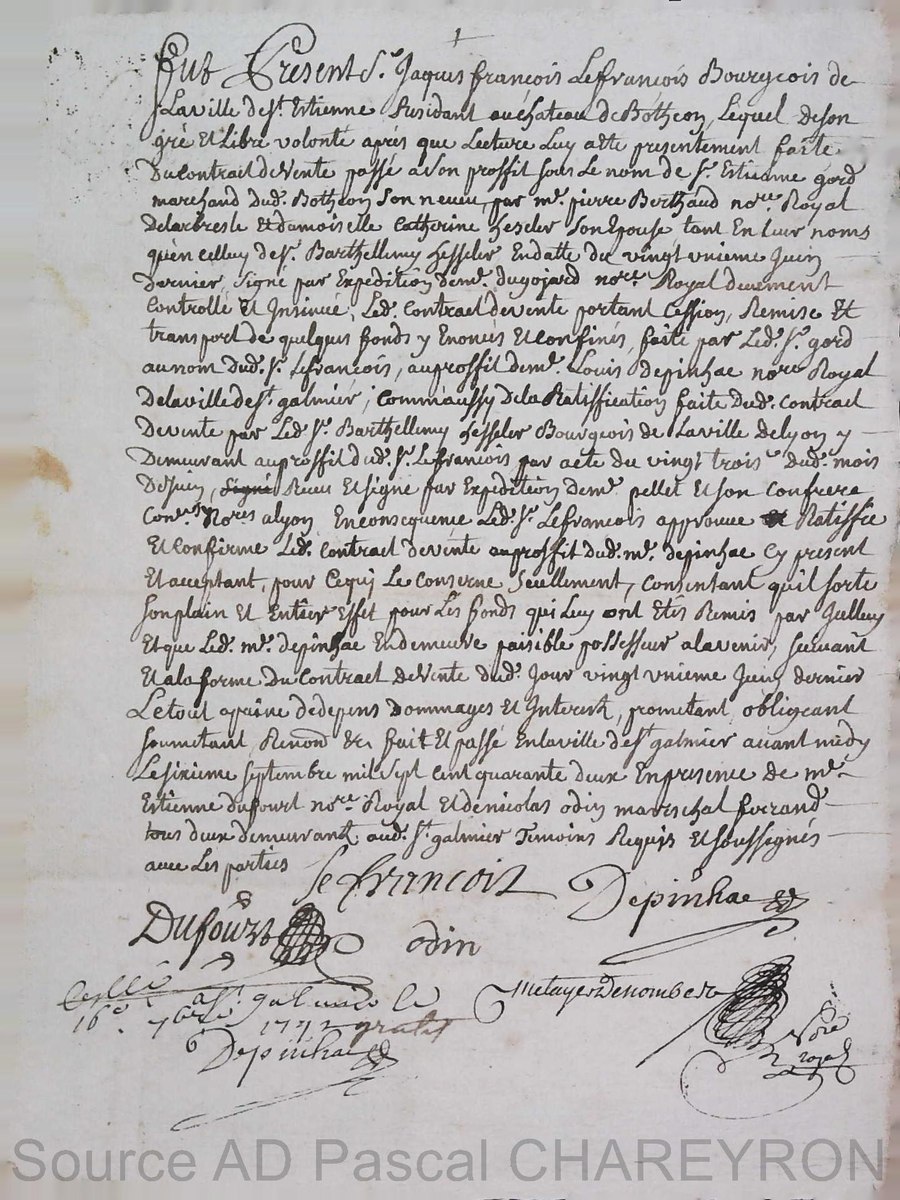 1
Fut Present Sr. Jaques françois Lefrançois Bourgeois de
Laville de st. Estienne Residant auchateau de Bothéon, Lequel deson
gré Et Libre volonté aprés que Lecture Luy aeté presentement faite
Ducontrait deVente passé ason proffit sous Le nom de sr. Estienne gord
marchand dud. Bothéon Son neveu, par me. pierre Berthaud nore. Royal
Delarbresle Etdamoiselle Catherine hesseler Son Epouse tant En Leur noms
qu'en celluy de sr. Barthellemy hesseler Endatte du vingt vnieme Juin
Dernier, signé par Expedition deme. dugojard nore. Royal duement
Controllé Et Insinué, Led. Contract devente portant Cession, Remise Et
transport de quelques fonds y Enoncés Et Confinés, faite par Led. sr. gord
aunom dud. sr. Lefrancois, auproffit deme. Louis depinhac nore. Royal
Delaville de st. galmier; Comm'aussy dela Ratiffication faite dud. Contract
Devente par Led. sr. Barthellemy hesseler Bourgeois de Laville delyon y
Demeurant auproffit dud. sr. Lefrancois par acte du vingt trois dud. mois
De Juin, signé Receu Et signé par Expedition deme. pellet Et son Confrere
Coners. Nores alyon Enconsequence Led. sr. Lefrancois approuve Ratiffie
Et Confirme Led. Contract devente auproffit dud. me. depinhac Cy present
Et acceptant, pour Cequi Le Conserne Seullement, Consentant quil sorte
Sonplain Et Entier Effet pour Les fonds qui Luy ont Etés Remis par Jcelluy
Et que Led. me. depinhac Endemeure paisible possesseur alavenir, suivant
Et ala forme Du Contract deVente dud. Jour vingt vnieme Juin dernier
Le tout apaine dedepens Dommages Et Interest, prometant, obligeant
soumetant, Renond &c. fait Et passé Enlaville de st. galmier avant midy
Le sixieme septembre mil sept cent quarante deux En presence de me.
Estienne dufourt nore. Royal Et denicolas odin mareschal ferrand
tous deux demeurant aud. st. galmier Temoins Requis Et soussignés
avec Les parties
Lefrancois
Depinhac
Dufourt
odin
Metayer Denombert
nore royal
Cellé a st. galmier le
16e. 7bre 1742 gratis
Depinhac
Source AD Pascal CHAREYRON